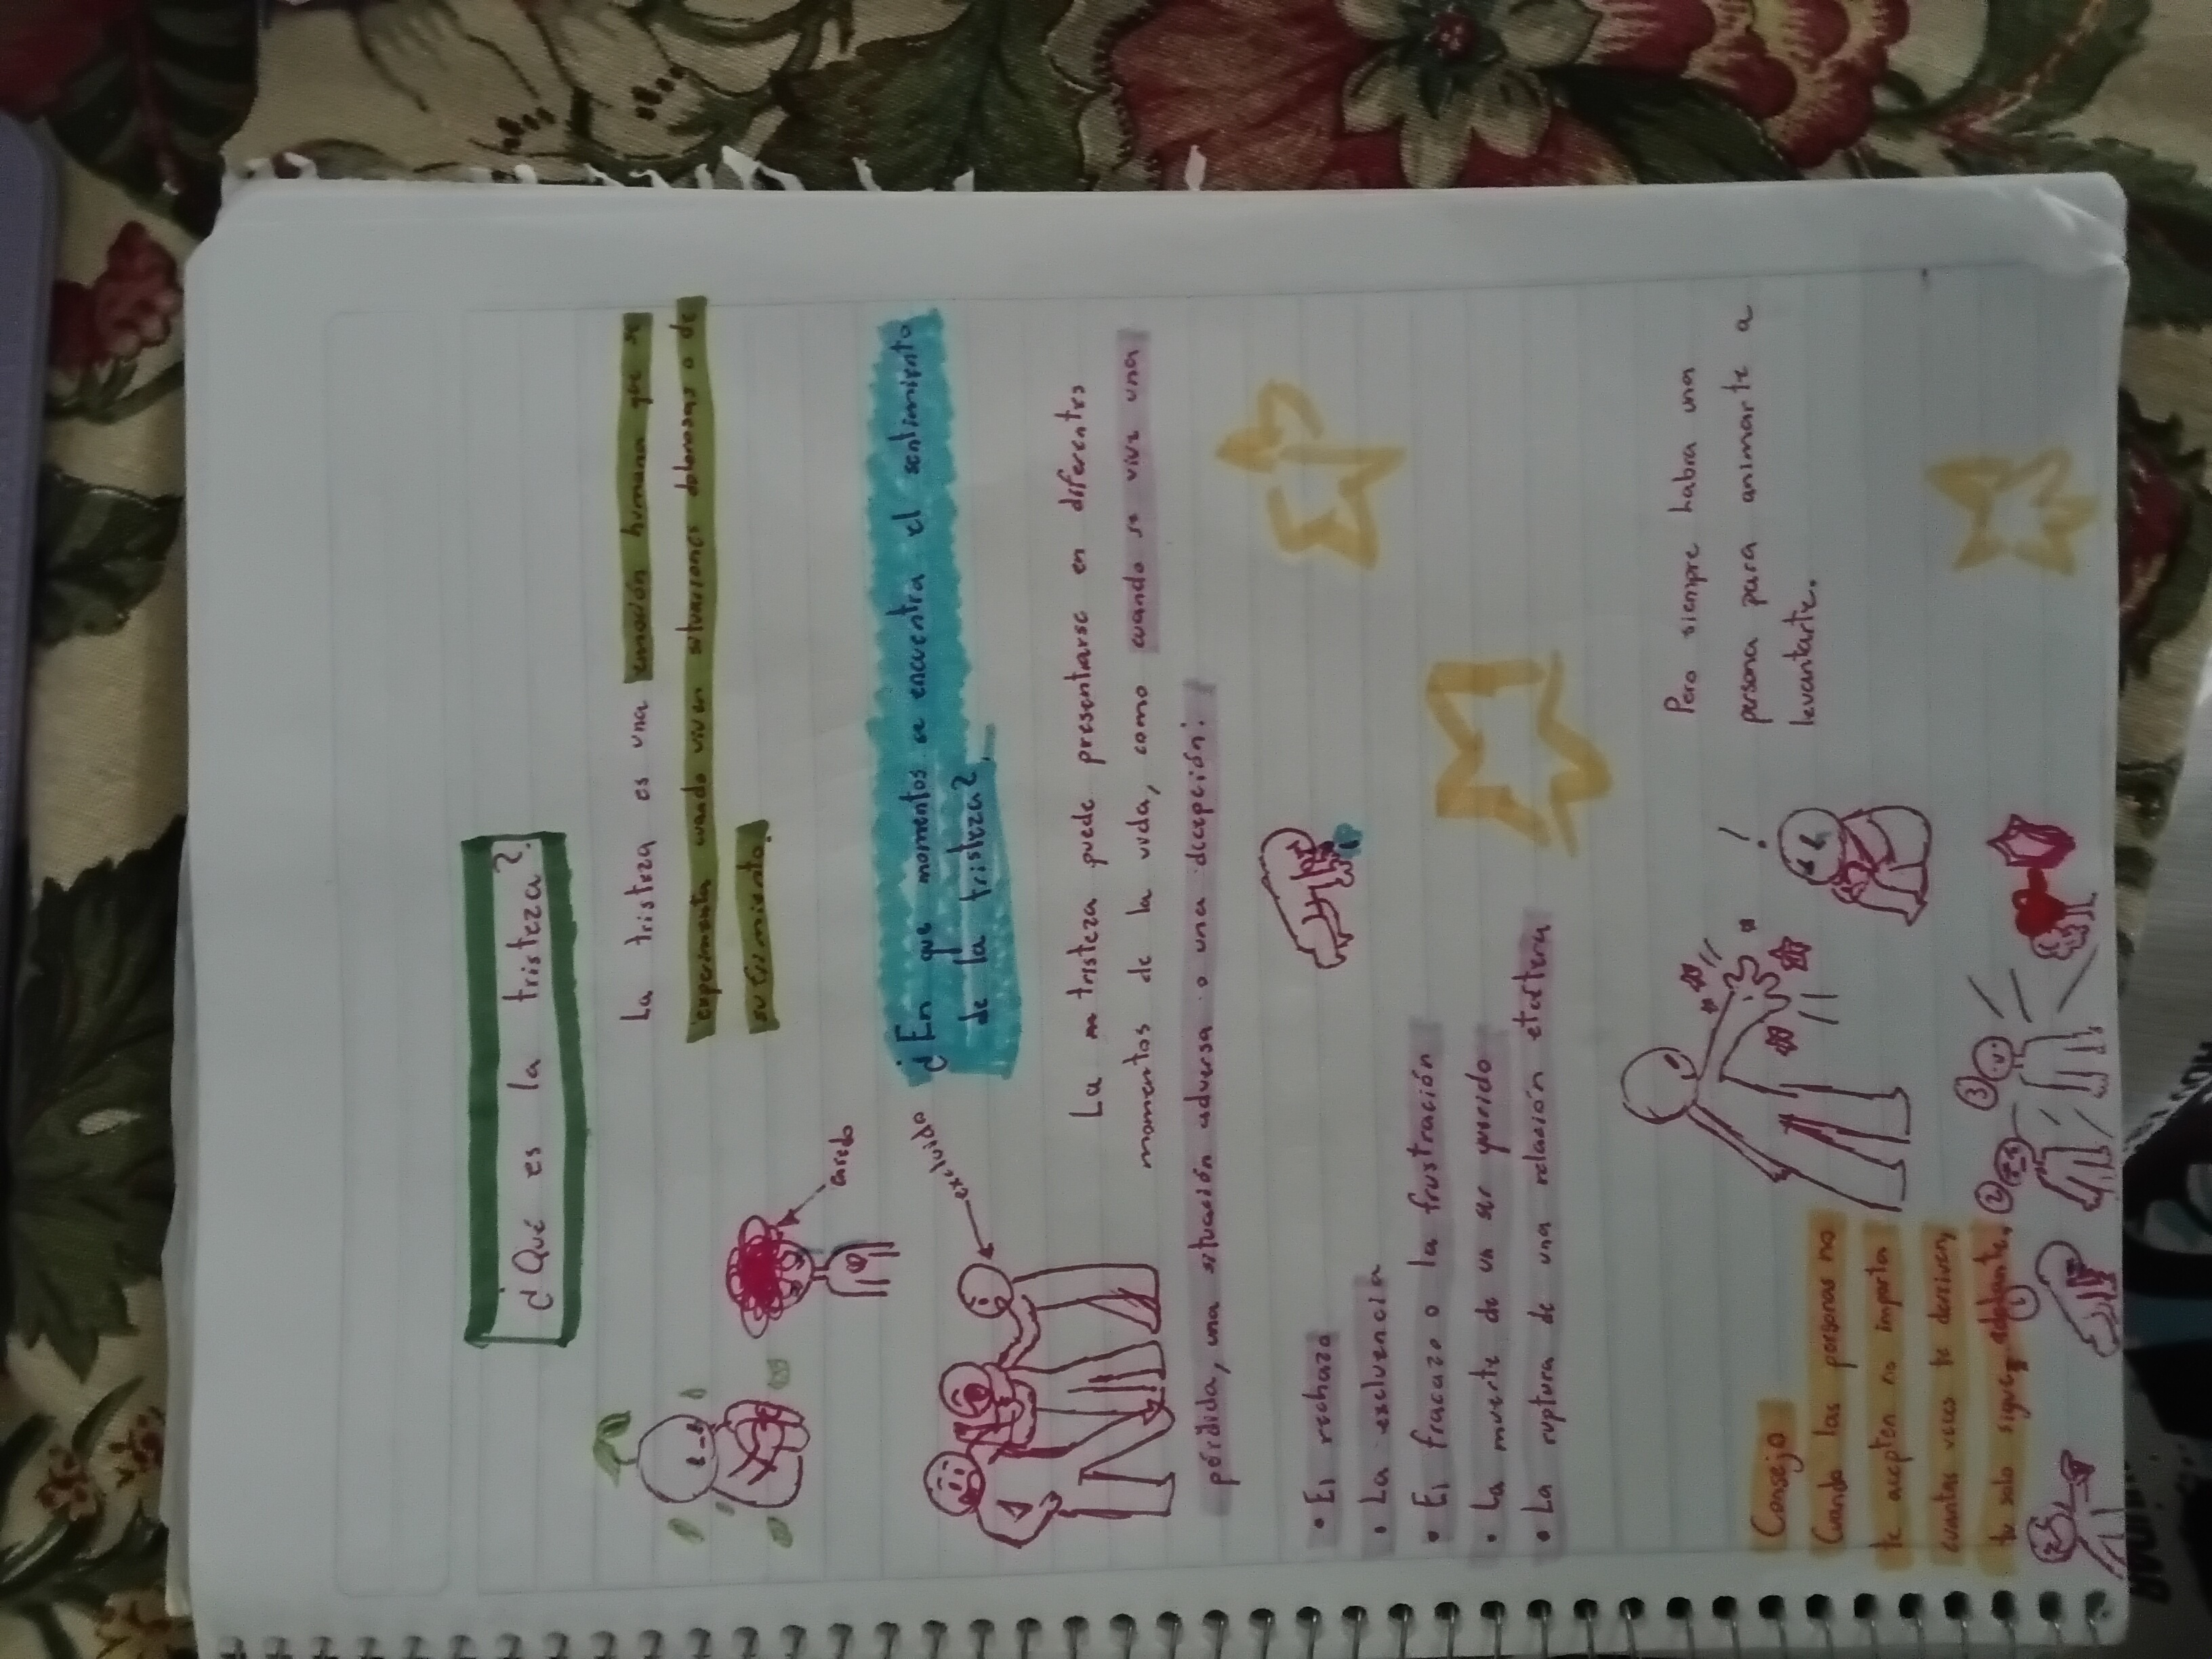 ¿Qué es la tristeza?
La tristeza es una emoción humana que se
experimenta cuando viven situaciones dolorosas o de
sufrimiento.
enredo
¿En que momentos se encuentra el sentimiento
de la tristeza?
excluido
La tristeza puede presentarse en diferentes
momentos de la vida, como cuando se vive una
pérdida, una situación adversa o una decepción:
• El rechazo
• La excluencia
• El fracazo o la frustración
• La muerte de un ser querido
• La ruptura de una relación etcétera
Consejo
Cuando las personas no
te acepten no importa
cuantas veces te derriven,
tu solo sigue adelante.
Pero siempre habra una
persona para animarte a
levantarte.
!
1
2
3